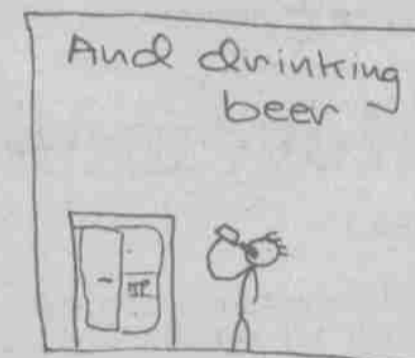 And drinking
beer